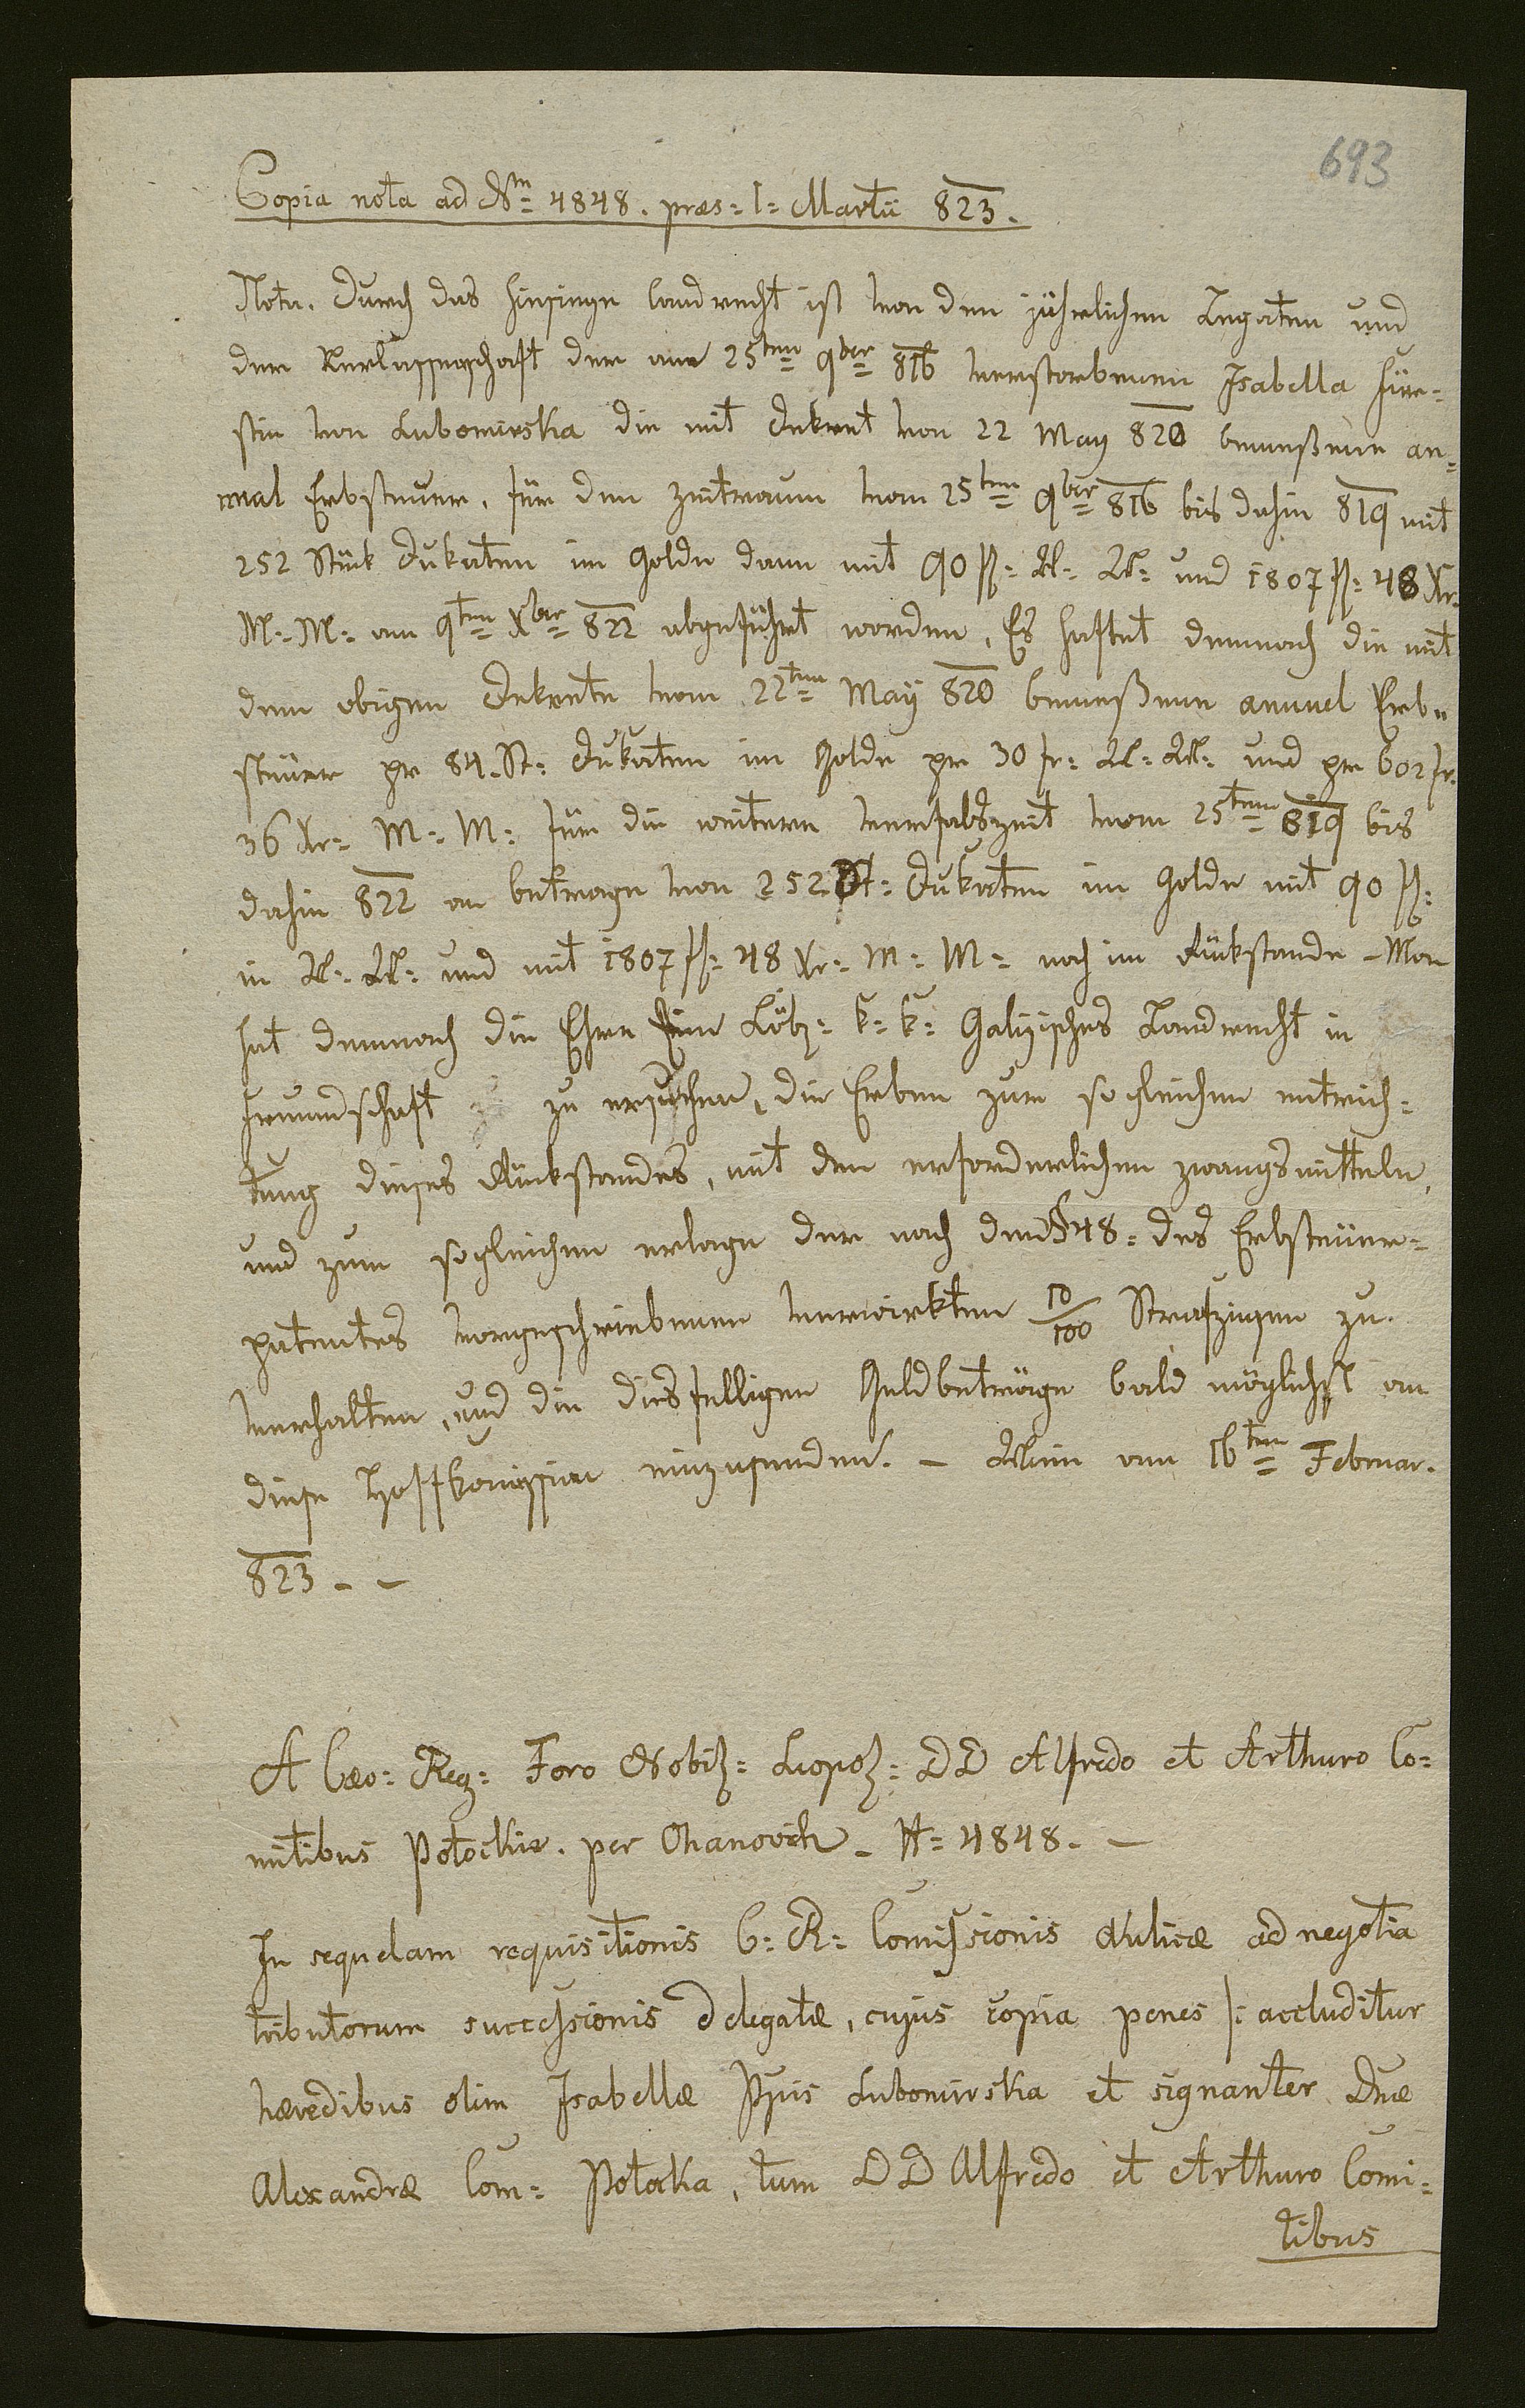 693
Copia nota ad Nrm 4848. praes: 1: Martii 823.
Nota. Durch das hiesige Landrecht ist von den jährlichen Legaten und
der Verlassenschaft der am 25ten 9ber 816 verstorbenen Isabella Für-
stin von Lubomirska die mit Dekret von 22 May 820 bemeßene an-
nual Erbsteuer, für den zeitraum vom 25ten 9ber 816 bis dahin 819 mit
252 Stük Dukaten im Golde dann mit 90 fl: W: W: und 1807 fl: 48 Xr.
M: M: am 9ten Xber 822 abgeführt worden. Es haftet demnach die mit
dem obigen Dekrete vom 22ten May 820 bemeßene annuel Erb-
steuer pr 84. St: Dukaten im Golde pr 30 fr: W: W: und pr 602 fr.
36 Xr: M: M: für die weitere verfalszeit vom 25ten 819 bis
dahin 822 im betrage von 252 St: Dukaten im Golde mit 90 fl:
in W: W: und mit 1807 fl: 48 Xr: M: M: noch im Rükstande - Man
hat demnach die Ehre Ein Löbl: k: k: Galizisches Landrecht in
Freundschaft zu ersuchen, die Erben zur sogleichen entrich-
tung dieses Rükstandes, mit den erforderlichen zwangsmitteln,
und zum sogleichen erlage der nach dem § 48: des Erbsteuer-
patentes vorgeschriebenen verwirkten 10/100 Strafzinsen zu
verhalten, und die diesfälligen Geldbeträge bald möglichst an
diese Hofkomission einzusenden. - Wien am 16ten Februar.
823. -
A Caeo: Reg: Foro Nobil: Leopol: DD Alfredo et Arthuro Co-
mitibus Potockie. per Chanovich - N: 4848. -
In sequelam requisitionis C: R: Comissionis Aulicæ ad negotia
tributorum successionis delegatæ, cujus copia penes /: accluditur
hæredibus olim Isabellæ Ppis Lubomirska et signanter Dnæ
Alexandræ Com: Potocka, tum DD Alfredo et Arthuro Comi-
tibus